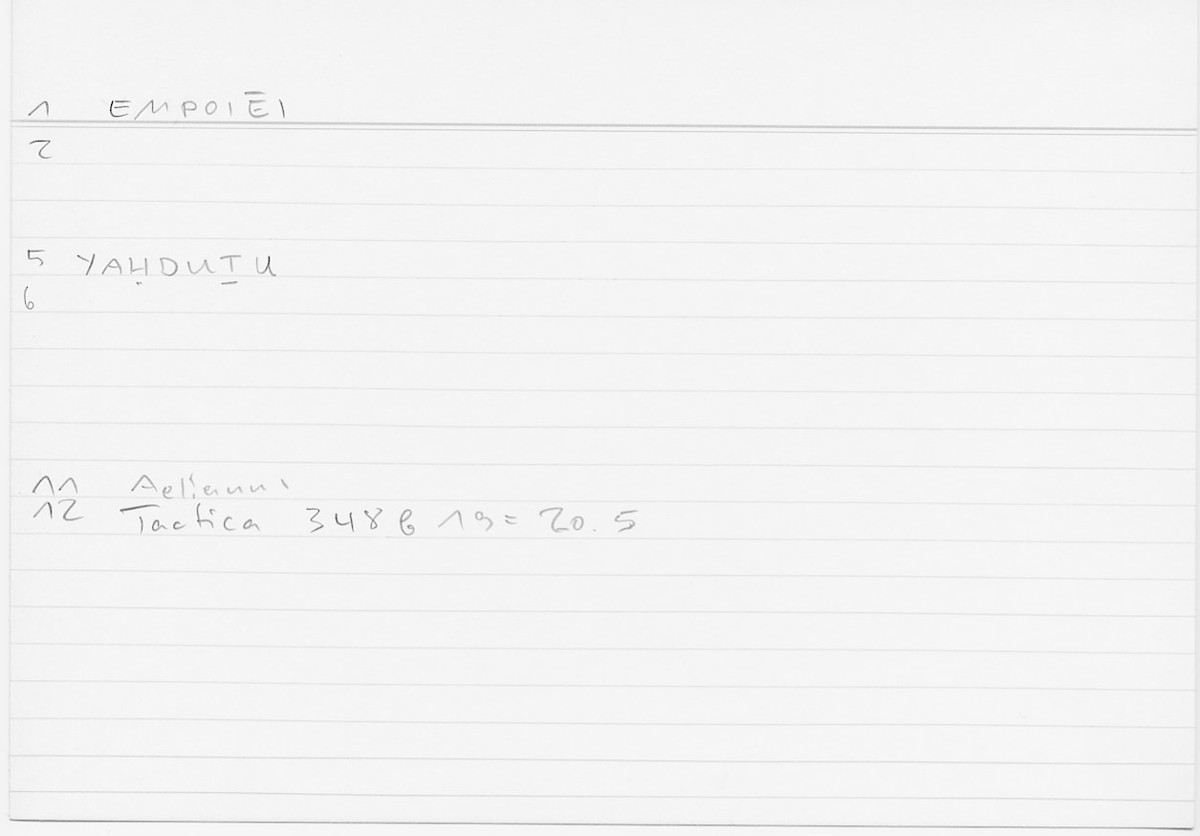 1 EMPOIĒI
2
5 YAḤDUṮU
6
11 Aeliani
12 Tactica 348 b 19 = 20.5